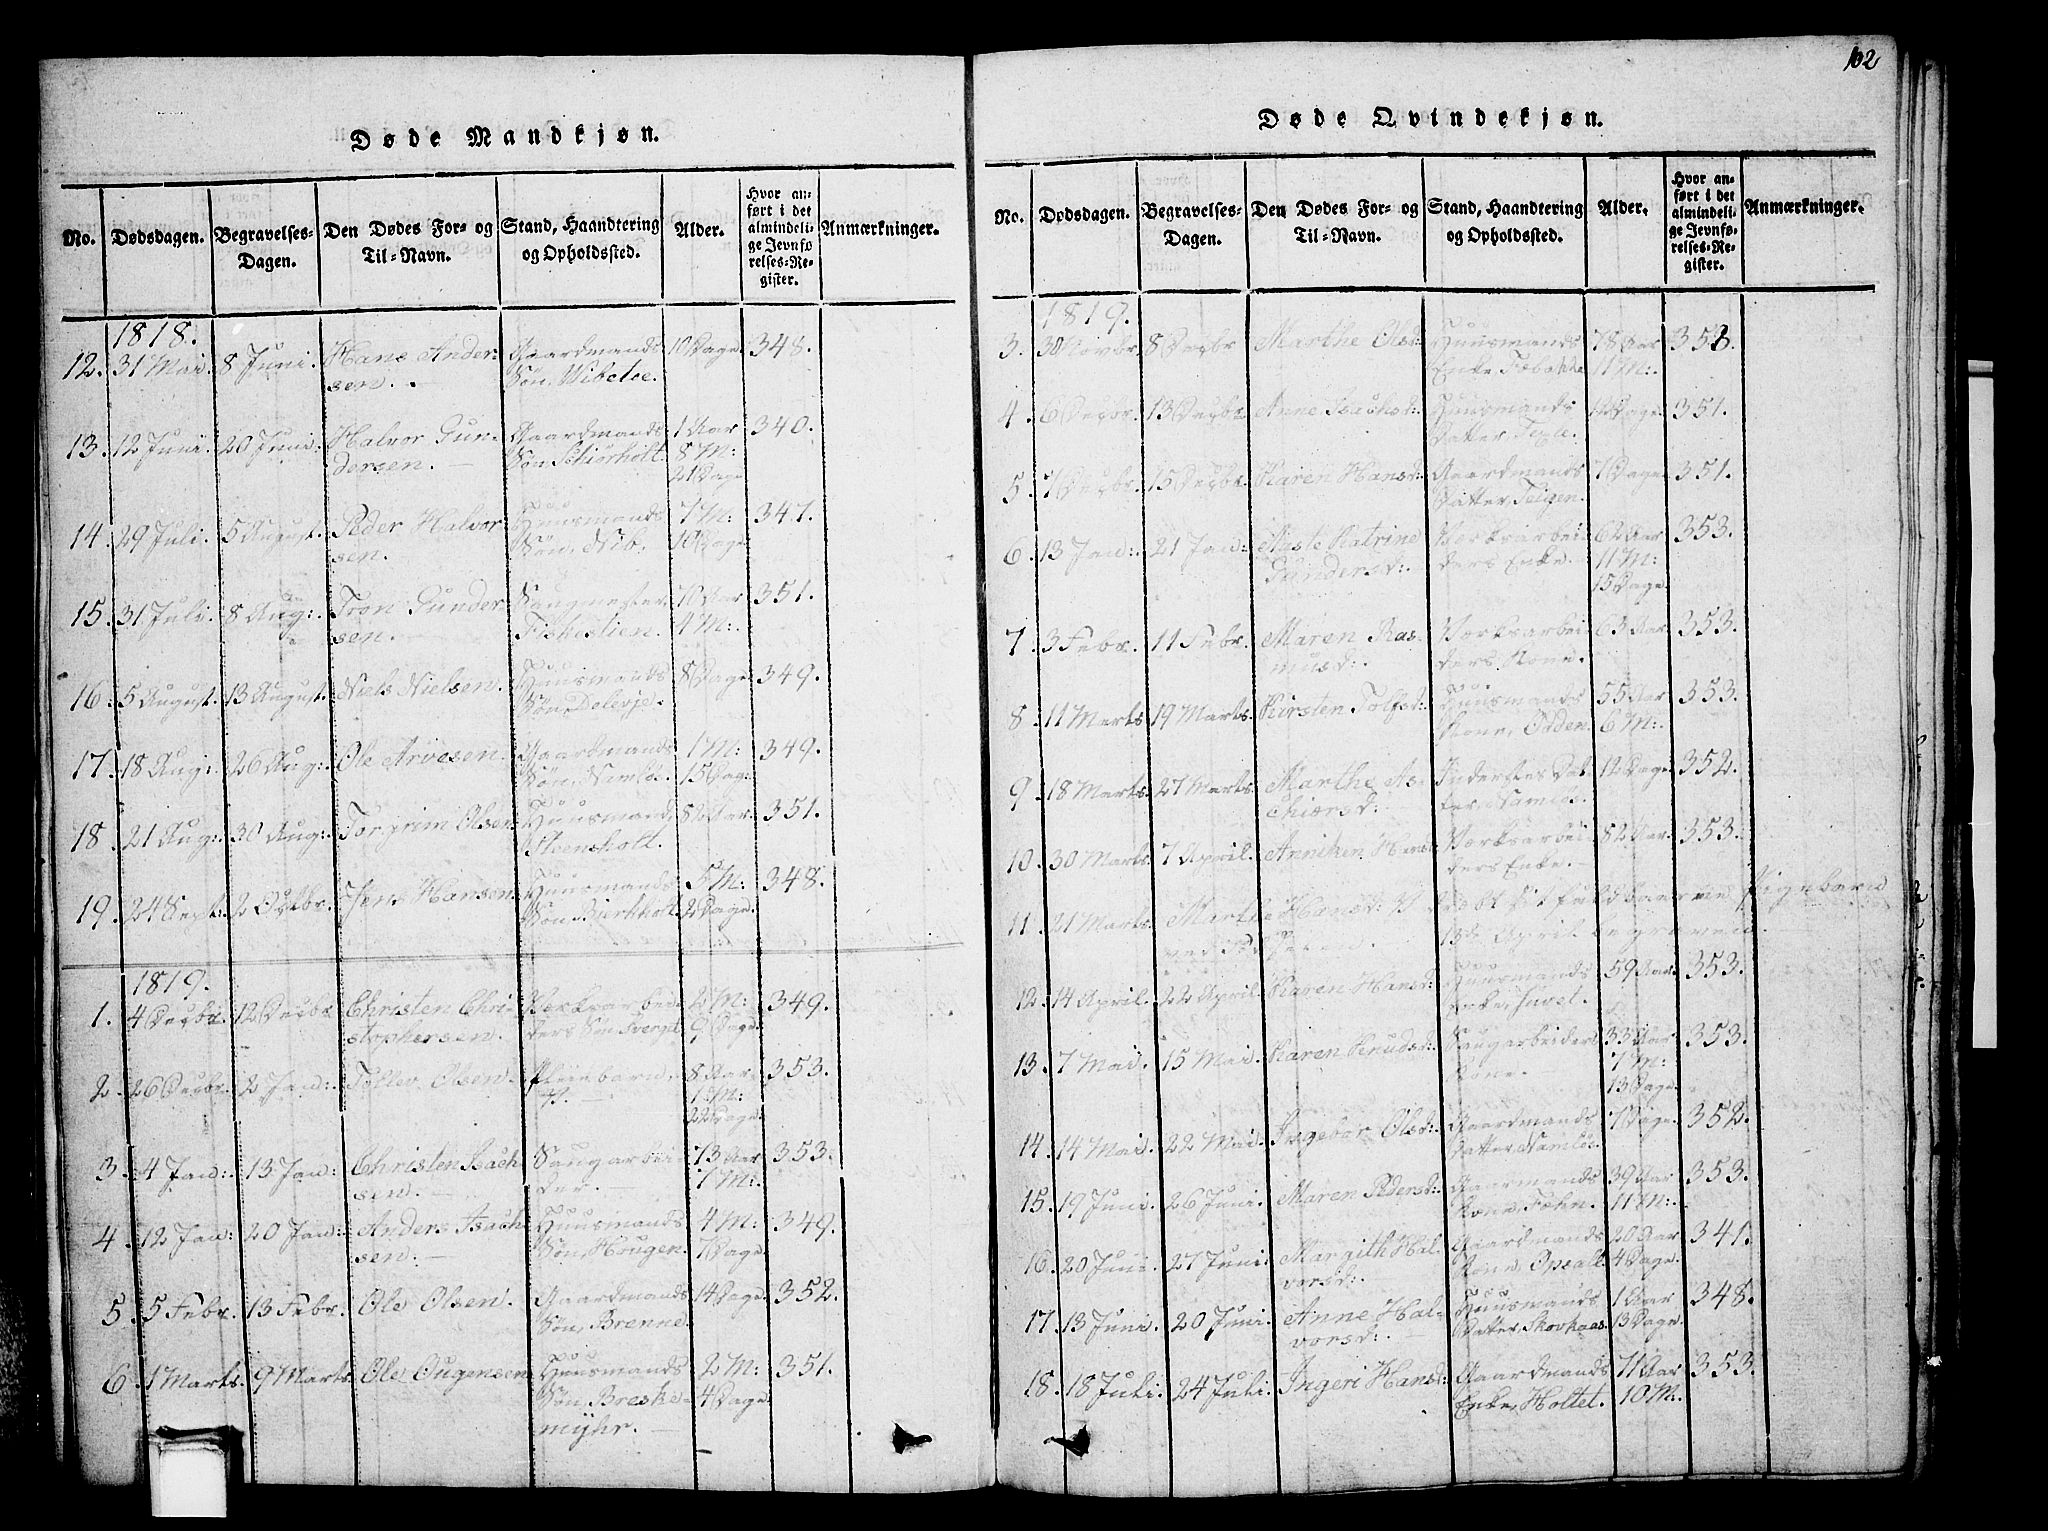 102
Døde Mandkjøn.
No. Dødsdagen. Begravelses-Dagen. Den Dødes For- og Til-Navn. Stand, Haandtering og Opholdssted. Alder. Hvor anført i det almindelige Jevnførelses-Register. Anmærkninger.
1818.
12. 31 Mai. 8 Juni. Hans Ander- Gaardmands 10 Dage 348.
sen. Søn, Wibetoe.
13. 12 Juni. 20 Juni. Halvor Gun- Gaardmands 1 Aar 340.
dersen. Søn, Schiørholt. 8 M:
21 Dage
14. 29 Juli. 5 August. Peder Halvor- Huusmands 7 M: 347.
sen. Søn, Nib. 10 Dage
15. 31 Juli. 8 Aug: Tron Gunder- Saugmester 70 Aar 351.
sen. 4 M:
16. 5 August. 13 August. Niels Nielsen. Huusmands 8 Dage 349.
Søn, Dolevje.
17. 18 Aug: 26 Aug: Ole Arvesen. Gaardmands 1 M: 349.
Søn, Namløs. 15 Dag:
18. 21 Aug: 30 Aug: Torgrim Olsen. Huusmand, 82 Aar. 351.
Steensholt.
19. 24 Sept: 2 Octbr. Jens Hansen. Huusmands 5 M: 348.
Søn Bierkholt. 2 Dage.
1819.
1. 4 Decbr. 12 Decbr. Christen Chri- Værksarbei- 2 M: 349.
stophersen. ders Søn 9 Dage.
2. 26 Decbr. 2 Jan: Tollev Olsen. Pleiebarn, 8 Aar 353.
1 M:
22 Dage.
3. 4 Jan: 13 Jan: Christen Isach- Saugarbei- 73 Aar 353.
sen. der. 7 M:
4. 12 Jan: 20 Jan: Anders Isach- Huusmands 4 M: 349.
sen. Søn, Hougen. 7 Dage.
5. 5 Febr. 13 Febr. Ole Olsen. Gaardmands 14 Dage. 352.
Søn, Brenne.
6. 1 Marts. 9 Marts. Ole Ougensen. Huusmands 2 M: 351.
Søn, Breske- 4 Dage.
myhr.
Døde Qvindekjøn.
No. Dødsdagen. Begravelses-Dagen. Den Dødes For- og Til-Navn. Stand, Haandtering og Opholdssted. Alder. Hvor anført i det almindelige Jevnførelses-Register. Anmærkninger.
1819.
3. 30 Novbr. 8 Decbr Marthe Olsd: Huusmands 78 Aar 353.
Enke, 11 M:
4. 6 Decbr. 13 Decbr. Anne Isachsd: Huusmands 12 Dage 351.
Datter,
5. 7 Decbr. 15 Decbr. Karen Hansd: Gaardmands 7 Dage 351.
Datter, Teigen.
6. 13 Jan: 21 Jan: Katrine Værksarbei- 62 Aar 353.
Gundersd: ders Enke. 11 M:
15 Dage.
7. 3 Febr. 11 Febr. Maren Ras- Værksarbei- 63 Aar 353.
musd: ders Kone.
8. 11 Marts. 19 Marts. Kirsten Tolfsd: Huusmands 55 Aar 353.
Kone, Odden. 6 M:
9. 18 Marts. 27 Marts. Marthe As- Inderstes Dat- 12 Dage 352.
chiersd: ter, Namløs.
10. 30 Marts. 7 April. Anniken Hansd: Værksarbei- 82 Aar. 353.
ders Enke.
11. 21 Marts. Marthe Hansd: fuldbaaren Pigebarn
13de April begraven.
12. 14 April. 22 April. Karen Hansd: Huusmands 59 Aar. 353.
Enke,
13. 7 Mai. 15 Mai. Karen Knudsd: Saugarbeiders 33 Aar 353.
Kone. 7 M:
13 Dage.
14. 14 Mai. 22 Mai. Ingebor Olsd: Gaardmands 7 Dage. 352.
Datter, Namløs.
15. 19 Juni. 26 Juni. Maren Pedersd: Gaarmands 39 Aar 353.
Kone, Foehn. 11 M:
16. 20 Juni. 27 Juni. Margith Hal- Gaardmands 20 Aar 341.
vorsd: Kone Opsalt. 4 Dage.
17. 13 Juni. 20 Juni. Anne Hal- Huusmands 1 Aar 348.
vorsd: Datter, Skovhaas. 13 Dage.
18. 18 Juli. 24 Juli. Ingeri Hansd: Gaardmands 71 Aar 353.
Enke, Holtet. 10 M: